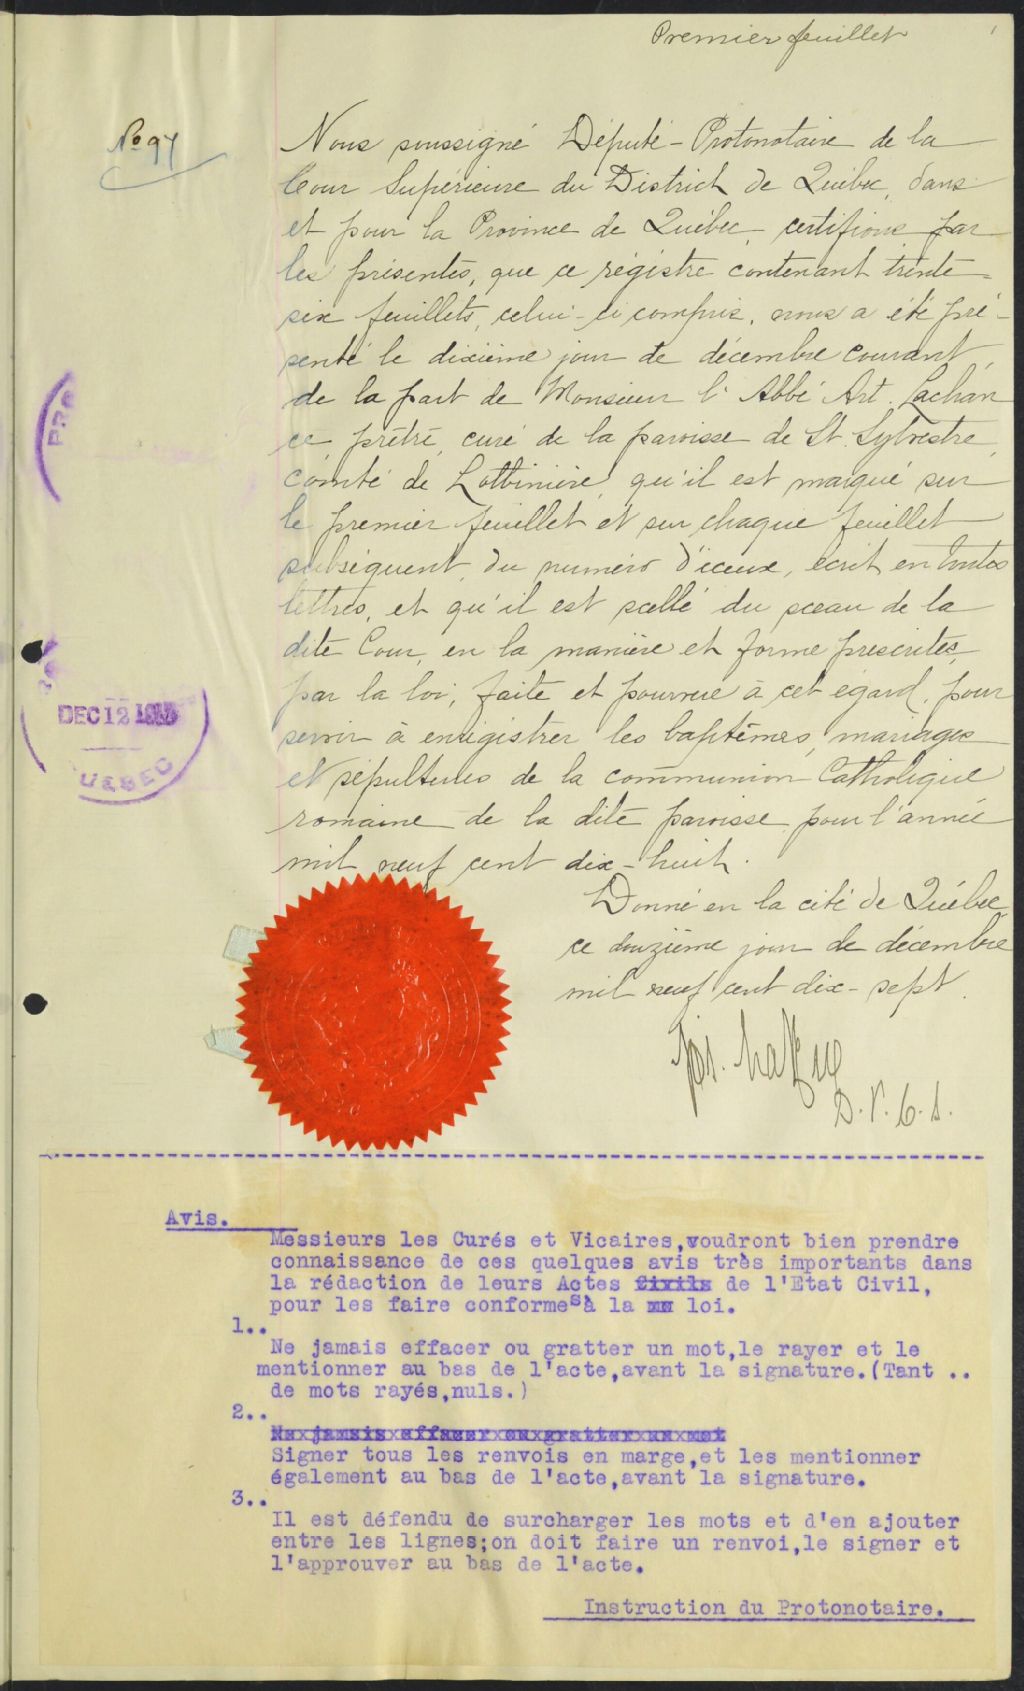 Premier feuillet
No 97
Nous soussigné Député-Protonotaire de la
Cour Supérieure du District de Québec, dans
et pour la Province de Québec, certifions par
les présentes, que ce régistre contenant trente-
six feuillets, celui-ci compris, nous a été pré-
senté le dixième jour de décembre courant,
de la part de Monsieur l'Abbé Art. Lachan
ce prêtre, curé de la paroisse de St. Sylvestre,
comté de Lotbinière, qu'il est marqué sur
le premier feuillet et sur chaque feuillet
subséquent, du numéro d'iceux, écrit en toutes
lettres, et qu'il est scellé du sceau de la
dite Cour, en la manière et forme prescrites,
par la loi, faite et pourvue à cet égard, pour
servir à enregistrer les baptêmes, mariages
et sépultures de la communion Catholique
romaine de la dite paroisse pour l'année
mil neuf cent dix-huit.
Donné en la cité de Québec,
ce douzième jour de décembre
mil neuf cent dix-sept.
D.P.C.S.
DEC 12
UEBEC
Avis.
Messieurs les Curés et Vicaires,voudront bien prendre
connaissance de ces quelques avis très importants dans
la rédaction de leurs Actes Civils de l'Etat Civil,
pour les faire conformes à la loi.
1..
Ne jamais effacer ou gratter un mot,le rayer et le
mentionner au bas de l'acte,avant la signature.(Tant ..
de mots rayés,nuls.)
2..
Ne jamais effacer ou gratter un mot
Signer tous les renvois en marge,et les mentionner
également au bas de l'acte,avant la signature.
3..
Il est défendu de surcharger les mots et d'en ajouter
entre les lignes;on doit faire un renvoi,le signer et
l'approuver au bas de l'acte.
Instruction du Protonotaire.